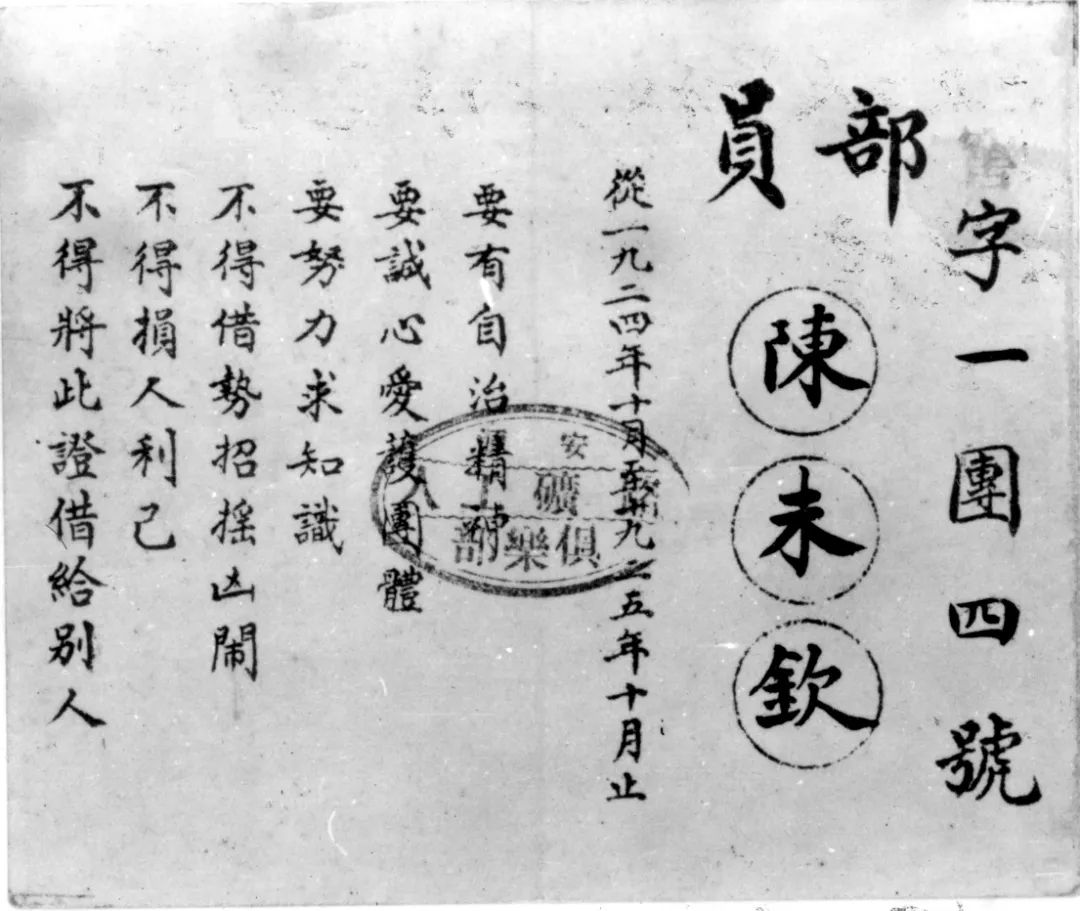 字一團四號
部員
陳未欽
從一九二四年十月至一九二五年十月止
要有自治精神
要誠心愛護團體
要努力求知識
不得借勢招搖凶鬧
不得損人利己
不得將此證借給別人
安
礦工人
俱樂部